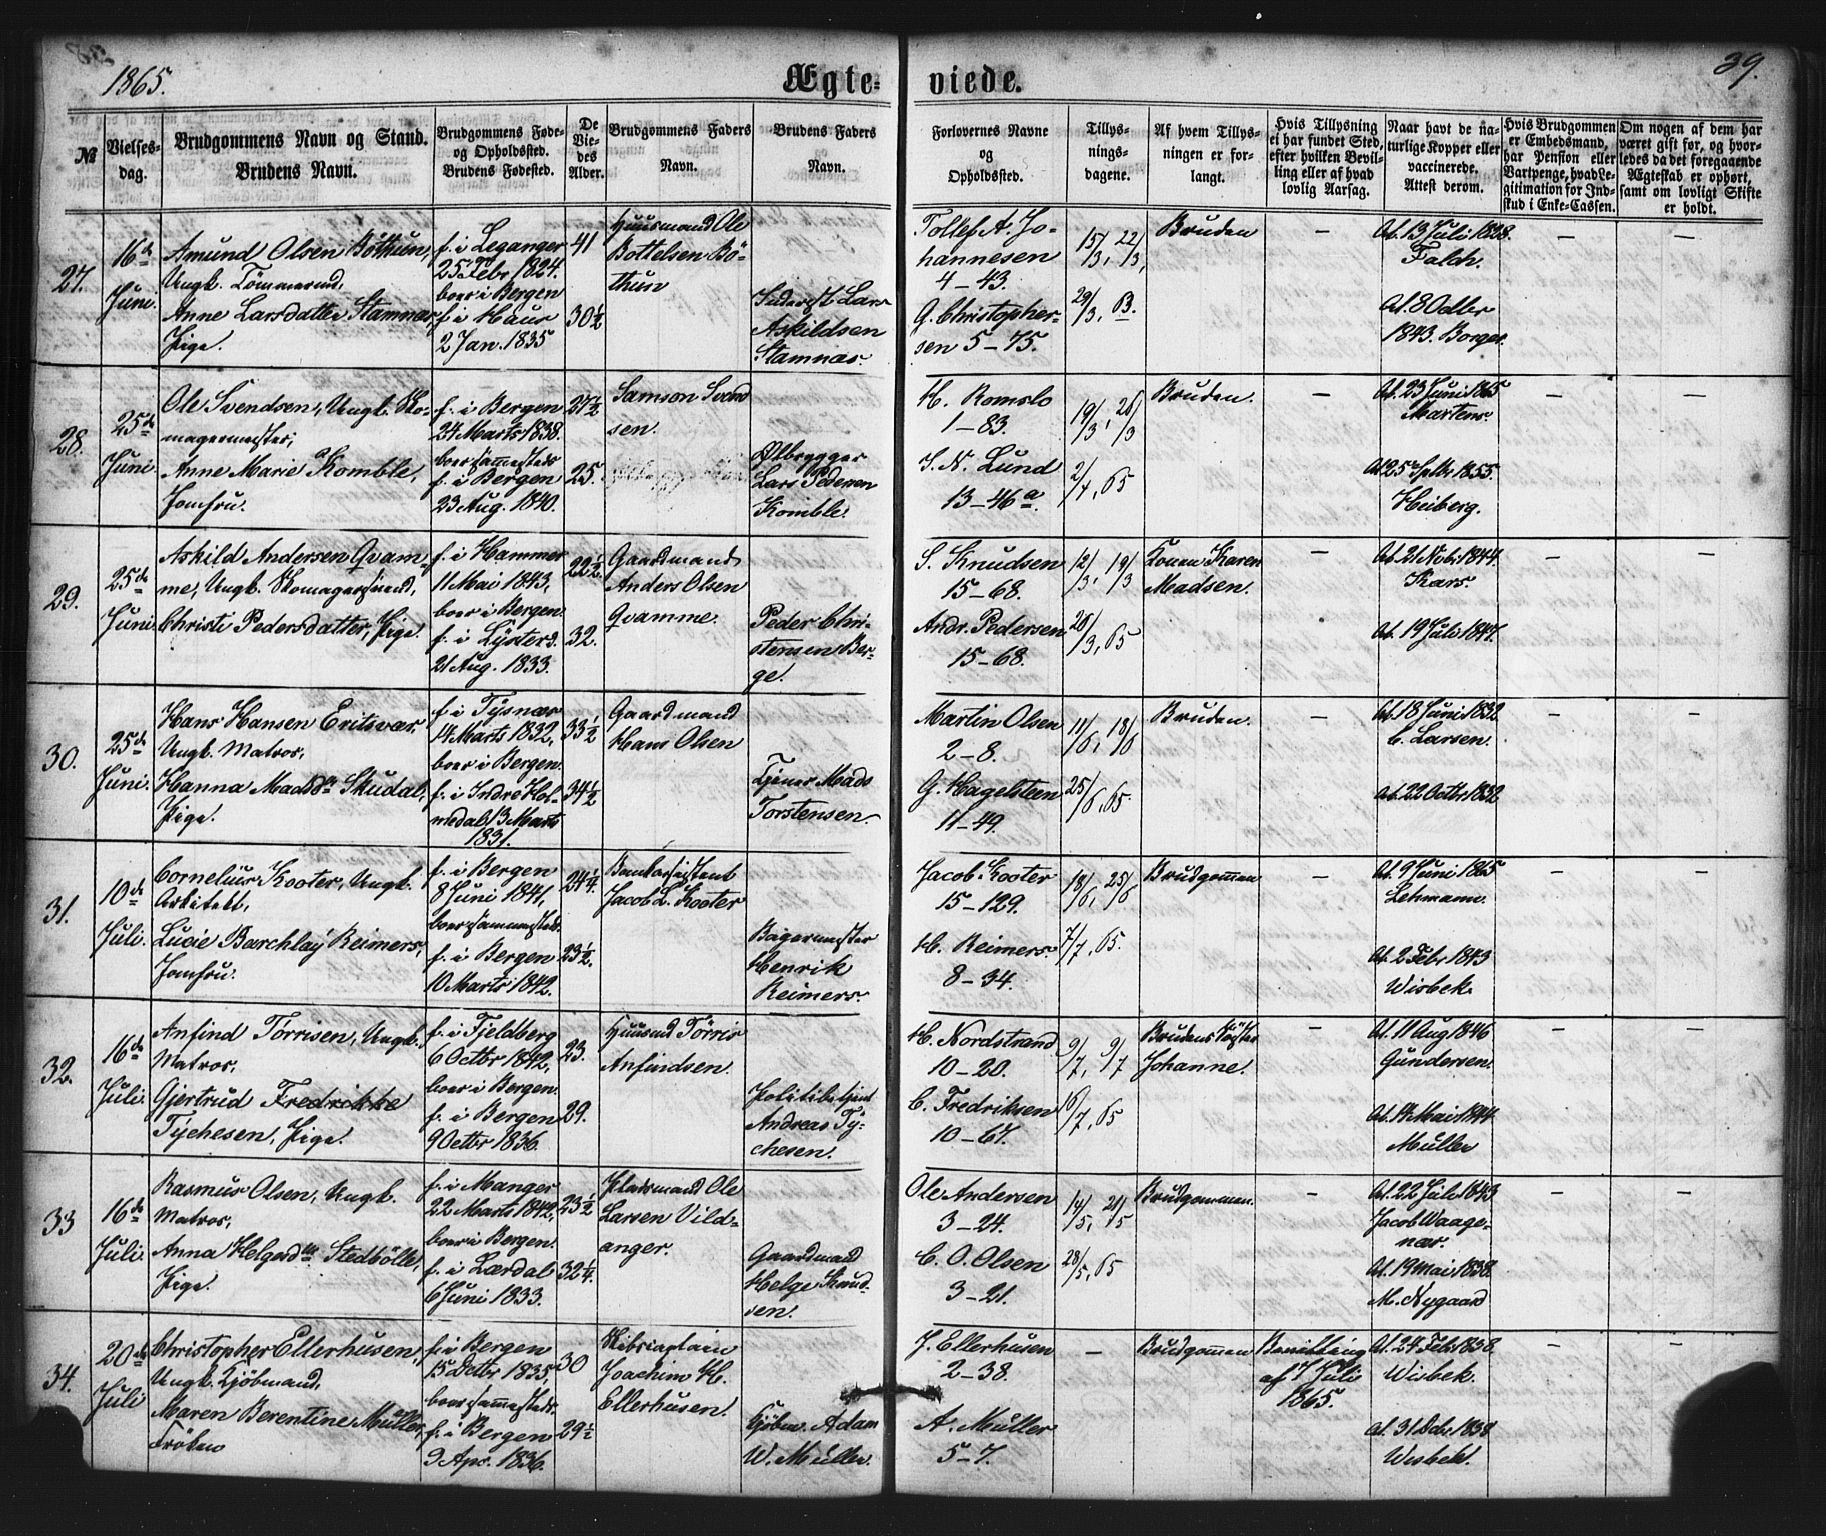 1865.
Ægte-
viede.
39.
№
Vielses-
dag.
Brudgommens Navn og Stand.
Brudens Navn.
Brudgommens Føde-
og Opholdssted.
Brudens Fødested.
De
Vie-
des
Alder.
Brudgommens Faders
Navn.
Brudens Faders
Navn.
Forlovernes Navne
og
Opholdssted.
Tillys-
nings-
dagene.
Af hvem Tillys-
ningen er for-
langt.
Hvis Tillysning
ei har fundet Sted,
efter hvilken Bevil-
ling eller af hvad
lovlig Aarsag.
Naar havt de na-
turlige Kopper eller
vaccinerede.
Attest derom.
Hvis Brudgommen
er Embedsmand,
har Pension eller
Vartpenge, hvad Le-
gitimation for Ind-
skud i Enke-Cassen.
Om nogen af dem har
været gift før, og hvor-
ledes da det foregaaende
Ægteskab er ophørt,
samt om lovligt Skifte
er holdt.
27.
16de
Juni.
Amund Olsen Böthun,
Ungk. Tömmermd,
Anne Larsdatter Stamnæs,
Pige.
f. i Leganger
25 Febr 1824.
boer i Bergen
f. i Haus
2 Jan. 1835
41
30½
Huusmand Ole
Bottelsen Bö-
thun
Lars
Askildsen
Stamnæs.
Tollef A. Jo-
hannesen
4-43.
G. Christopher-
sen 5-75.
15/3, 22/3,
29/3, 63.
Bruden
–
At. 13 Juli 1828.
Falch.
At. 8 Octbr
1843. Borges.
–
–
28.
25de
Juni.
Ole Svendsen, Ungk. Sko-
magermester,
Anne Marie Komble,
Jomfru.
f. i Bergen
24 Marts 1838.
boer sammesteds
f. i Bergen
23 Aug. 1840.
27½
25.
Samson Svend
sen.
Ölbrygger
Lars Pedersen
Komble.
H. Romslo
1-83.
S. N. Lund
13-46a.
19/3, 26/3
2/4, 65
Bruden.
–
At. 23 Juni 1865
Martens.
At 25 Septbr 1855.
Heiberg.
–
–
29.
25de
Juni.
Askild Andersen Qvam-
me, Ungk. Skomagersvend,
Christi Pedersdatter, Pige.
f. i Hammer
11 Mai 1843,
boer i Bergen
f. i Lyster d.
21 Aug. 1833.
22½
32.
Gaardmand
Anders Olsen
Qvamme.
Peder Chri-
stensen Ber-
ge.
S. Knudsen
15-68.
Andr. Pedersen
15-68.
12/3, 19/3
26/3, 65
Konen Karen
Madsen.
–
At. 21 Novbr. 1844.
Kars.
At. 19 Juli 1847.
–
–
30.
25de
Juni.
Hans Hansen Eritsvær,
Ungk. Matros,
Hanna Madsdr Skudal,
Pige.
f. i Tysnæs
14 Marts 1832,
boer i Bergen.
f. i Indre Hol-
medal 13 Marts
1831.
33½
34½
Gaardmand
Hans Olsen
Tjener Mads
Torstensen.
Martin Olsen
2-8.
G. Hagelsteen
11-49.
11/6, 18/6
25/6, 65.
Bruden.
–
At. 18 Juni 1832
C. Larsen.
At. 22 Octbr 1832
–
–
31.
10de
Juli.
Cornelius Kooter, Ungk.
Arkitekt,
Lucie Barchlay Reimers,
Jomfru.
f. i Bergen
8 Juni 1841,
boer sammesteds.
f. i Bergen
10 Marts 1842.
24¼
23½.
Bankassistent
Jacob L. Kooter
Bagermester
Henrik
Reimers.
Jacob Kooter
15-129.
H. Reimers.
8-34.
18/6, 25/6
7/7, 65.
Brudgommen
–
At. 9 Juni 1865
Lehmann.
At. 2 Febr 1843
Wisbek.
–
–
32.
16de
Juli.
Anfind Törrisen, Ungk.
Matros,
Gjertrud Fredrikke
Tychesen, Pige.
f. i Fjeldberg
6 Octbr 1842,
boer i Bergen.
f. i Bergen
9 Octbr 1836.
23.
29.
Huusmd Törris
Anfindsen.
Politibetjent
Andreas Ty-
chesen.
H. Nordstrand
10-20.
C. Fredriksen
10-67.
9/7, 9/7
16/7, 65
Brudens Söster
Johanne.
–
At. 11 Aug 1846
Gundersen.
At. 14 Mai 1844
Müller
–
–
33
16de
Juli.
Rasmus Olsen, Ungk.
Matros,
Anna Helgesdtr Stedbölle,
Pige.
f. i Manger
22 Marts 1842,
boer i Bergen.
f. i Lærdal
6 Juni 1833.
23½
32¼.
Pladsmand Ole
Larsen Vild-
anger.
Gaardmand
Helge Knud-
sen.
Ole Andersen
3-24.
C. O. Olsen
3-21.
14/5, 21/5
28/5, 65
Brudgommen.
–
At. 22 Juli 1843
Jacob Waage-
nær.
At. 19 Mai 1838.
M. Nygaard
–
–
34.
20de
Juli
Christopher Ellerhusen,
Ungk. Kjöbmand,
Maren Berentine Müller,
Fröken
f. i Bergen
15 Octbr 1835,
boer sammesteds.
f. i Bergen
9 Apr. 1836.
30
29½
Skibscaptain
Joachim H.
Ellerhusen.
Kjöbm. Adam
W. Müller.
J. Ellerhusen
2-38.
A. Müller
5-7.
–
Brudgommen
Bevilling
af 7 Juli
1865.
At. 24 Febr 1838.
Wisbek.
At. 31 Dcbr 1838
Wisbek.
–
–